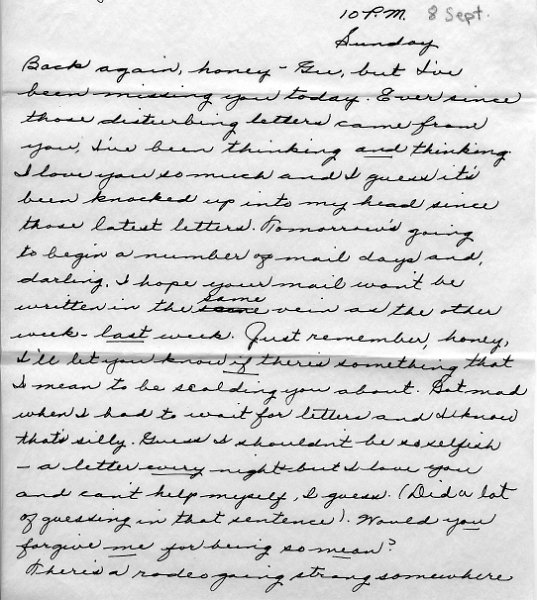 10 P.M. 8 Sept.
Sunday
Back again, honey - Gee, but I've
been missing you today. Ever since
those disturbing letters came from
you, I've been thinking and thinking.
I love you so much and I guess it's
been knocked up into my head since
those latest letters. Tomorrow's going
to begin a number of mail days and,
darling, I hope your mail won't be
written in the same vein as the other
week - last week. Just remember, honey,
I'll let you know if there's something that
I mean to be scolding you about. Got mad
when I had to wait for letters and I know
that's silly. Guess I shouldn't be so selfish
- a letter every night - but I love you
and can't help myself, I guess. (Did a lot
of guessing in that sentence). Would you
forgive me for being so mean?
There's a rodeo going strong somewhere